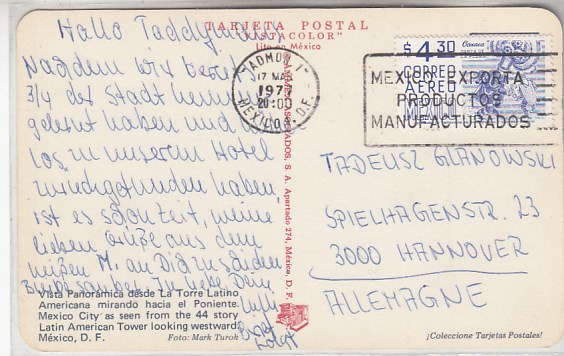 Hallo Taddymann,
Nachdem wir heute
3/4 der Stadt kennen
gelernt haben und
los zu unserem Hotel
zurückgefunden haben
ist es schon Zeit, meine
lieben Grüße aus dem
M. an Dich zu
In Liebe Dein
TARJETA POSTAL
"VISTACOLOR"
Lito en México
Vista Panorámica desde La Torre Latino
Americana mirando hacia el Poniente.
Mexico City as seen from the 44 story
Latin American Tower looking westward.
México, D. F.
Foto: Mark Turok
S. A. Apartado 274, México, D. F.
17 MAY
197
20:00
MEXICO, D.F.
$4.30
Oaxaca
CORREO
AEREO
MEXICO
MEXICO EXPORTA
PRODUCTOS
MANUFACTURADOS
TADEUSZ GLANOWSKI
SPIELHAGENSTR. 23
3000 HANNOVER
ALLEMAGNE
¡Coleccione Tarjetas Postales!